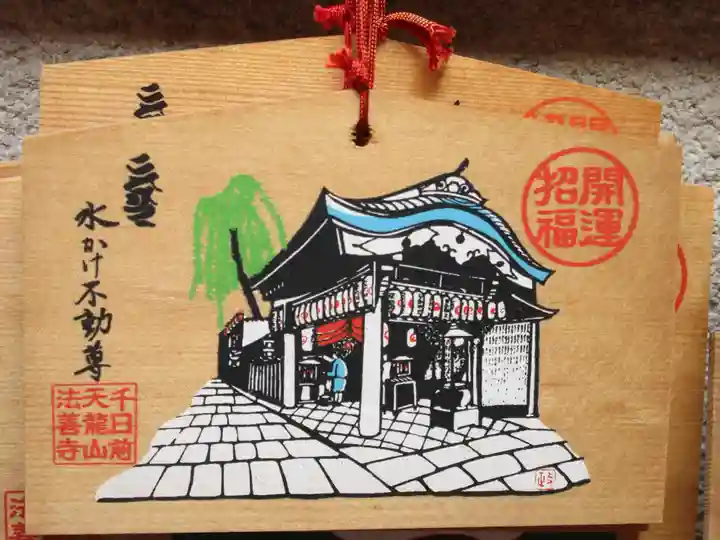 開運
招福
水かけ不動尊
千日前
天龍山
法善寺